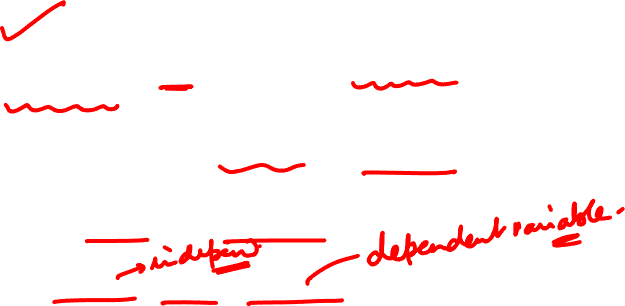 indepen.
dependent variable.